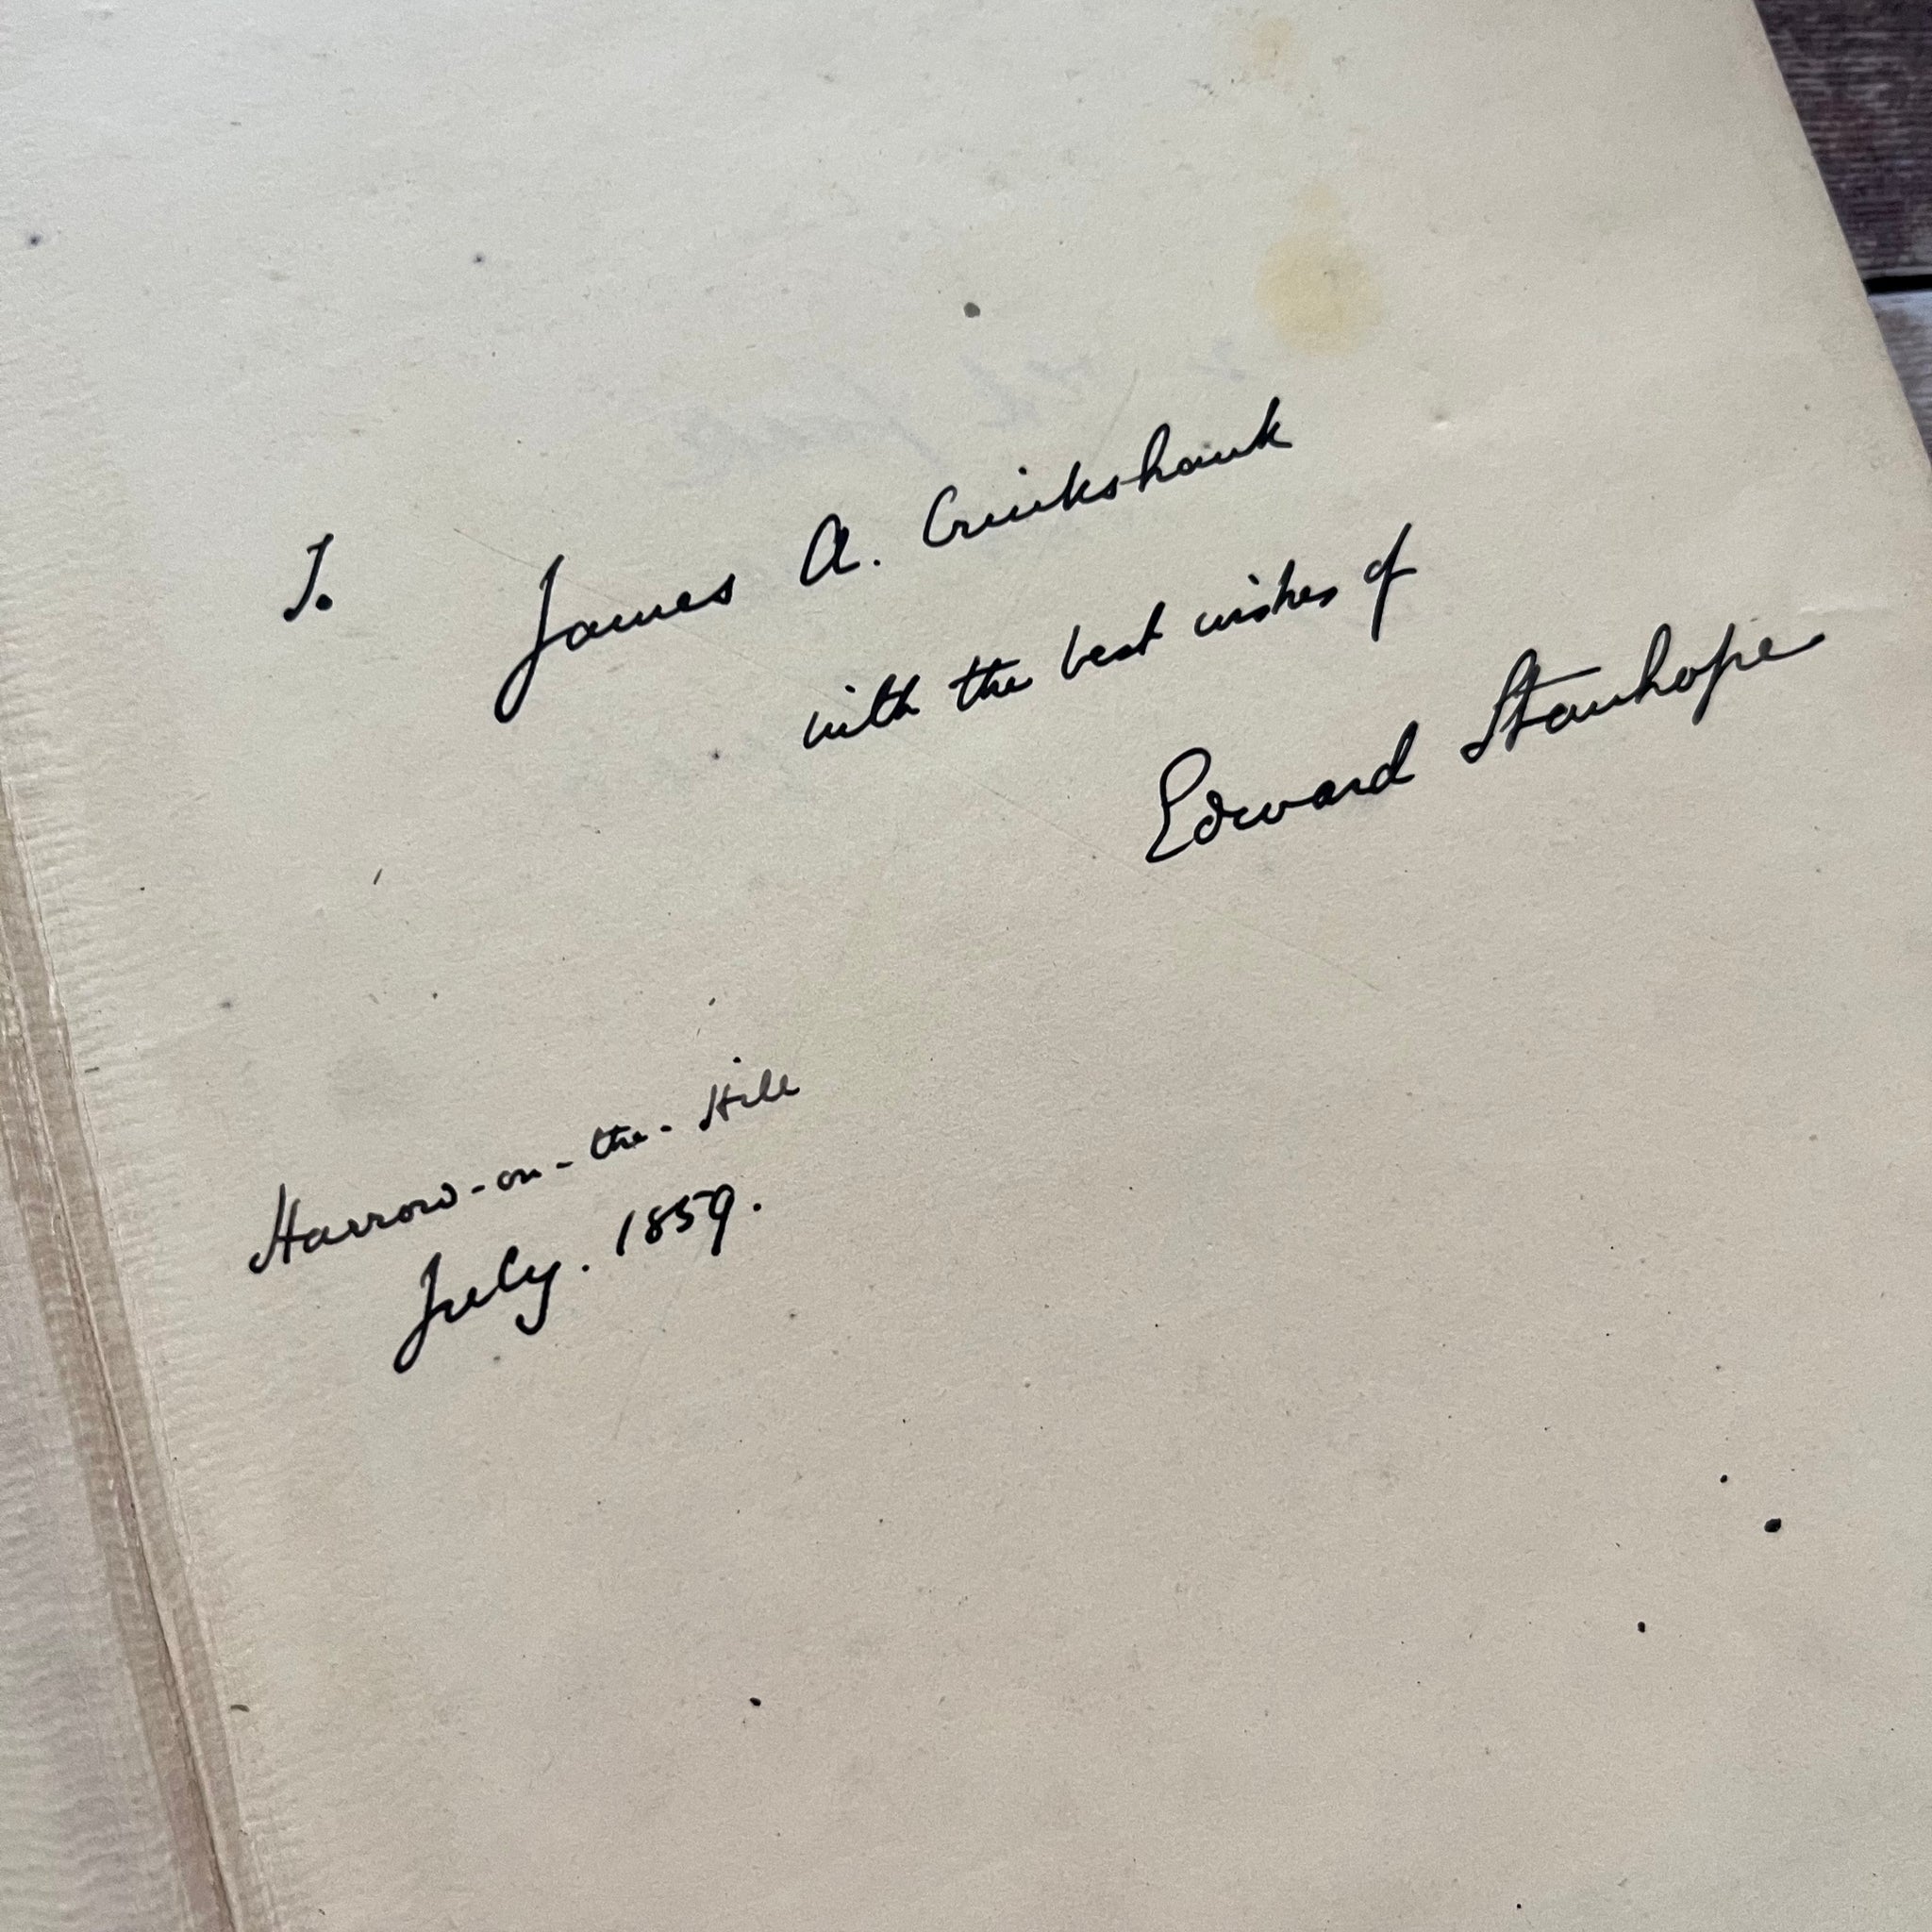 To
James A. Cruikshank
with the best wishes of
Edward Stanhope
Harrow-on-the-Hill
July. 1859.